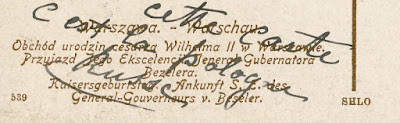 cette carte
Warszawa. - Warschau.
Obchód urodzin cesarza Wilhelma II w Warszawie.
Przyjazd Jego Ekscelencji Jeneral Gubernatora
Bezelera.
Kaisersgeburtstag. Ankunft S. E. des
General-Gouverneurs v. Beseler.
539
SHLO